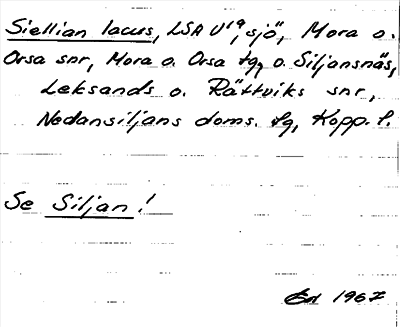 Siellian lacus, LSA U19, sjö, Mora o.
Orsa snr, Mora o. Orsa tg, o. Siljansnäs,
Leksands o. Rättviks snr,
Nedansiljans doms. tg, Kopp. l.
Se Siljan!
1967